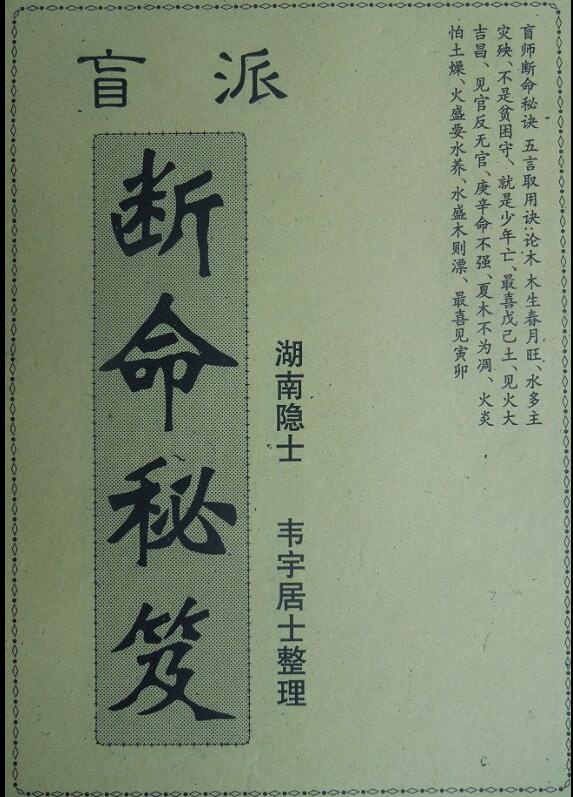 盲派
断命秘笈
湖南隐士 韦宇居士整理
盲师断命秘诀 五言取用诀:论木 木生春月旺、水多主
灾殃、不是贫困守、就是少年亡、最喜戊己土、见火大
吉昌、见官反无官、庚辛命不强、夏木不为凋、火炎
怕土燥、火盛要水养、水盛木则漂、最喜见寅卯